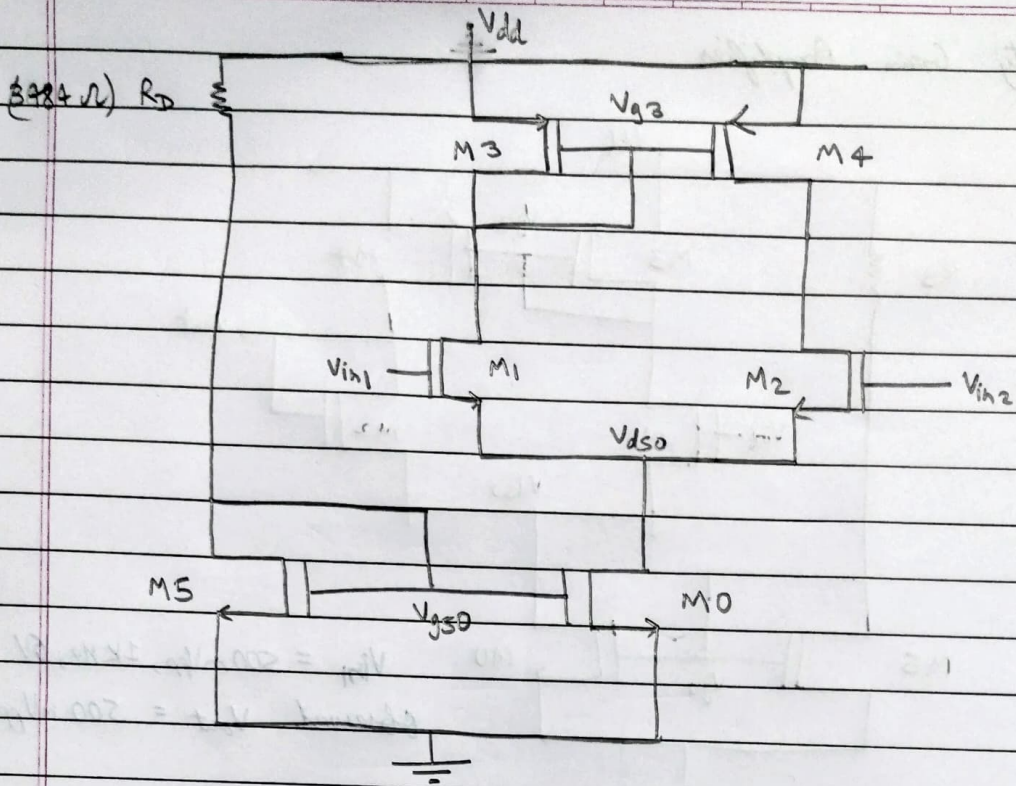 Vdd
(3484 Ω) RD
Vg3
M3
M4
Vin1
M1
M2
Vin2
Vds0
M5
Vgs0
M0